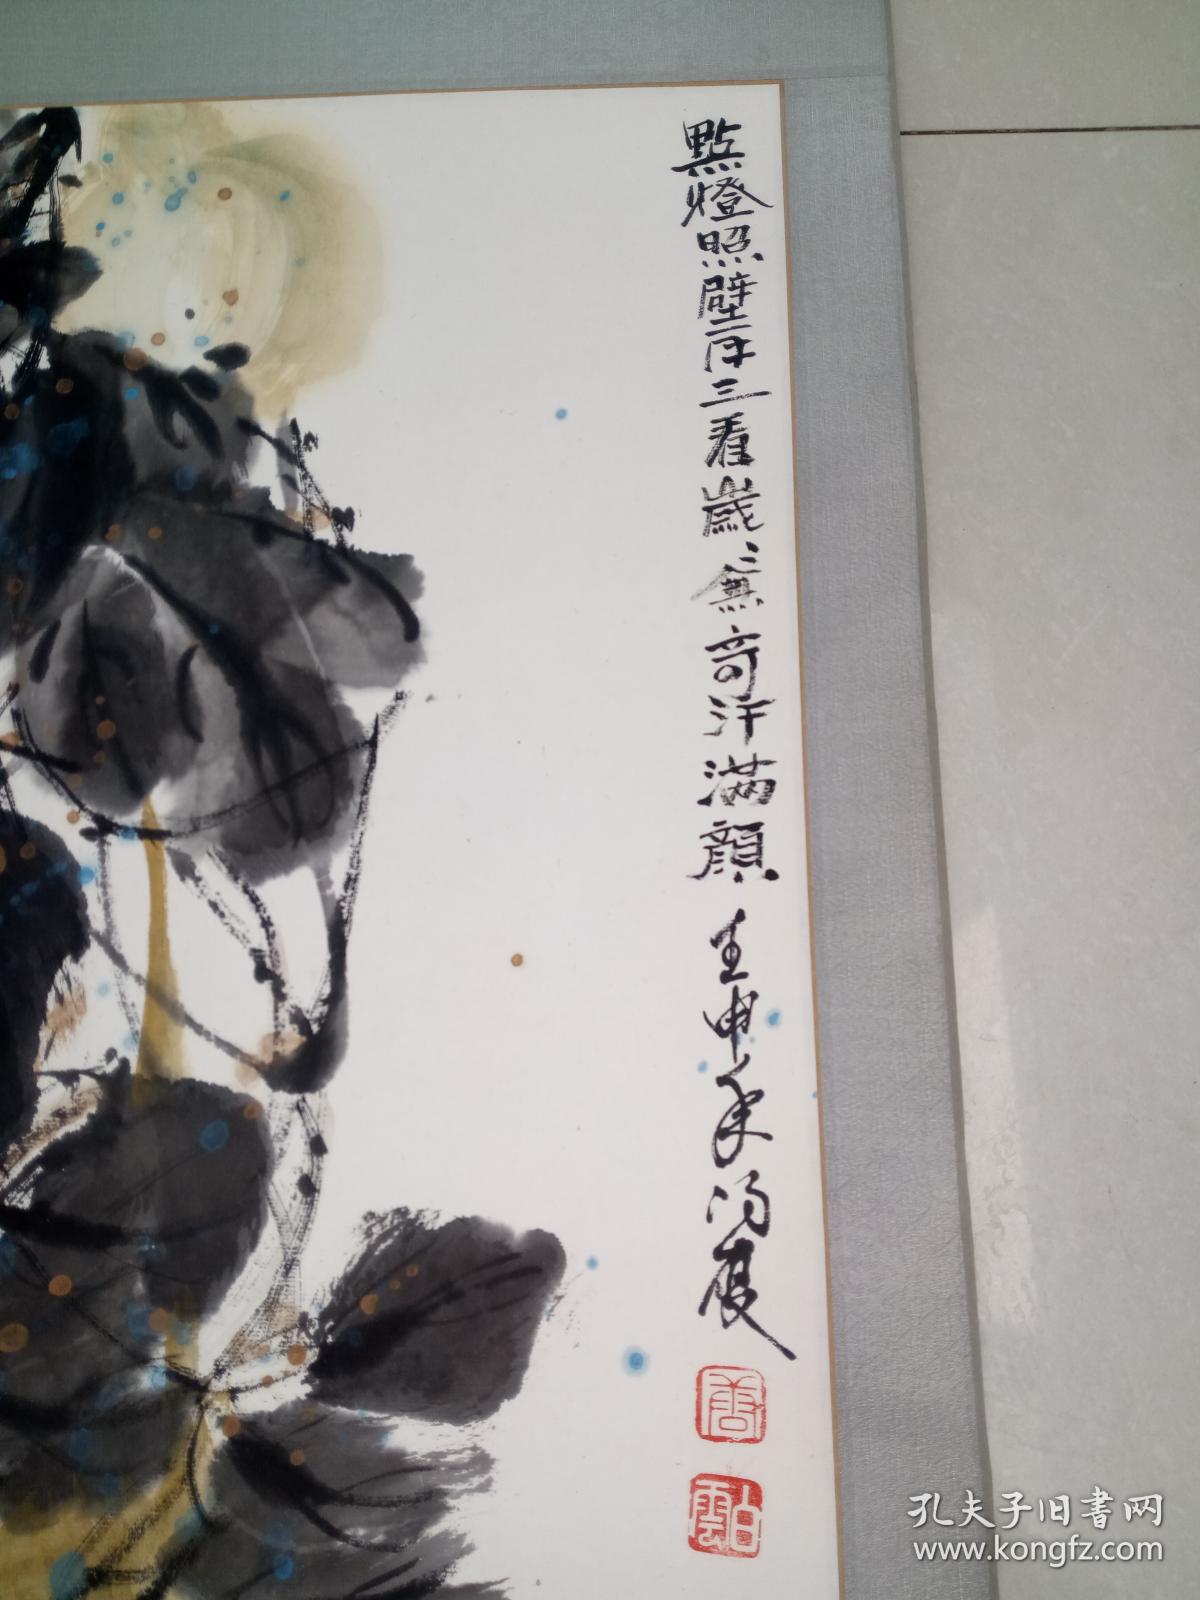 點燈照壁再三看歲〻無奇汗滿顏 壬申年 湯夏
唐
白雲
孔夫子旧书网
www.kongfz.com